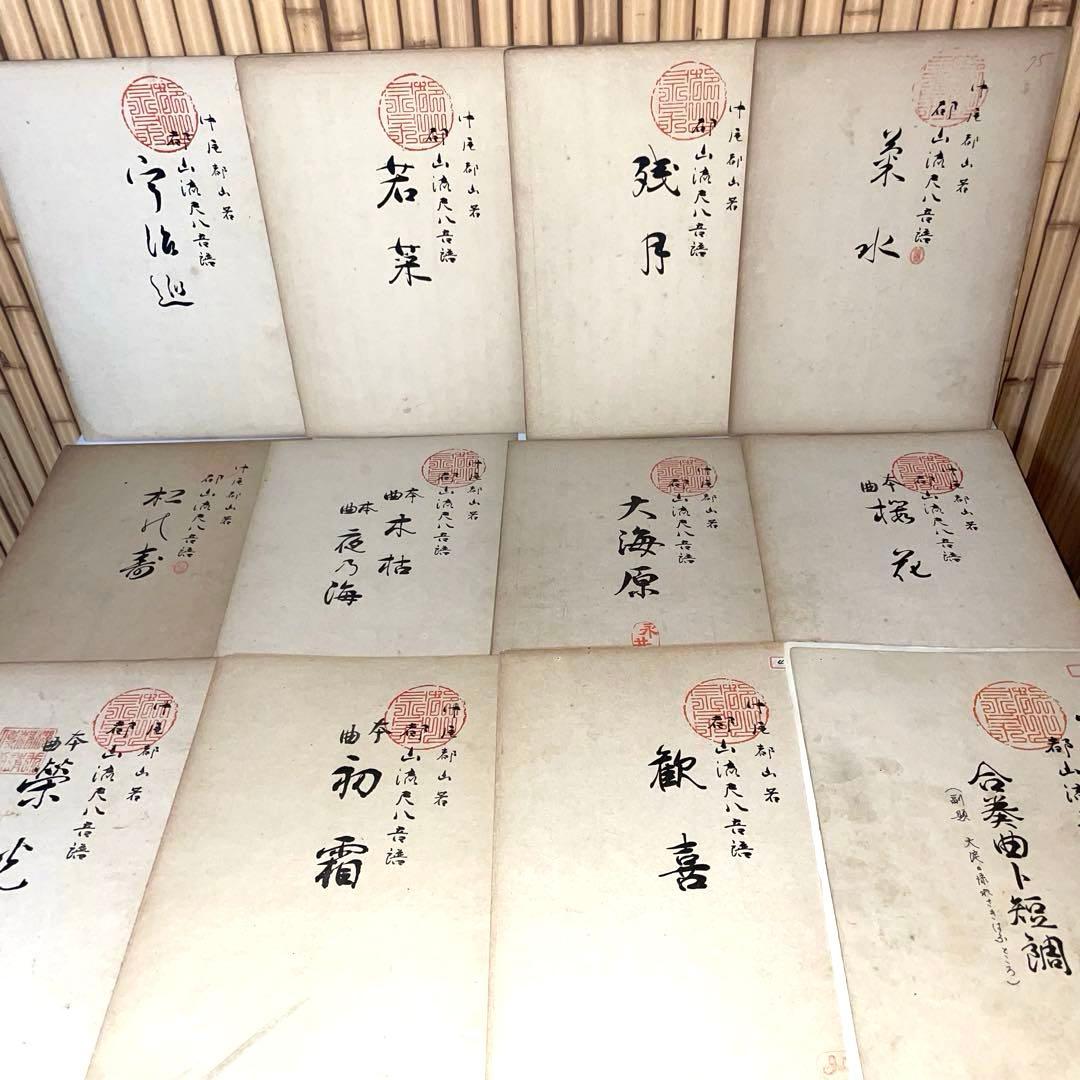 中尾都山著
都山流尺八音譜
宇治巡
中尾都山著
都山流尺八音譜
若菜
中尾都山著
都山流尺八音譜
残月
75
中尾都山著
都山流尺八音譜
菊水
中尾都山著
都山流尺八音譜
松の寿
中尾都山著
都山流尺八音譜
本曲 木枯
本曲 夜乃海
中尾都山著
都山流尺八音譜
大海原
永井
中尾都山著
都山流尺八音譜
本曲 櫻花
中尾都山著
都山流尺八音譜
本曲 榮光
中尾都山著
都山流尺八音譜
本曲 初霜
中尾都山著
都山流尺八音譜
歓喜
都山流
合奏曲ト短調